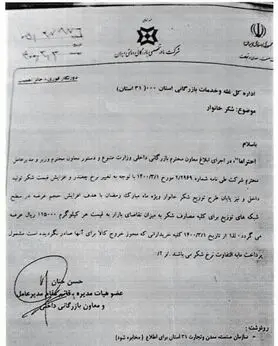 شرکت مادر تخصصی بازرگانی دولتی ایران
اداره کل غله و خدمات بازرگانی استان ۰۰۰ (۳۱ استان)
موضوع: شکر خانوار
باسلام
احتراماً، در اجرای ابلاغ معاون محترم بازرگانی داخلی وزارت متبوع و دستور معاون محترم وزیر و مدیرعامل
محترم شرکت طی نامه شماره ۲/۲۹۶۹ مورخ ۱۴۰۰/۳/۱ با توجه به تغییر نرخ چغندر و افزایش قیمت شکر تولید
داخل و نیز پایان طرح توزیع شکر خانوار ویژه ماه مبارک رمضان با هدف افزایش حجم عرضه در سطح
شبکه های توزیع برای کلیه مصارف شکر به میزان تقاضای بازار به قیمت هر کیلوگرم ۱۱۵۰۰۰ ریال عرضه
می گردد. لذا از تاریخ ۱۴۰۰/۳/۱ کلیه خریدارانی که مجوز خروج کالا برای آنها صادر نگردیده است مشمول
پرداخت مابه التفاوت نرخ شکر می باشند.
حسن حنان
عضو هیات مدیره و قائم مقام مدیرعامل
و معاون بازرگانی داخلی
رونوشت:
- سازمان صنعت معدن و تجارت ۳۱ استان برای اطلاع (مخابره شود)